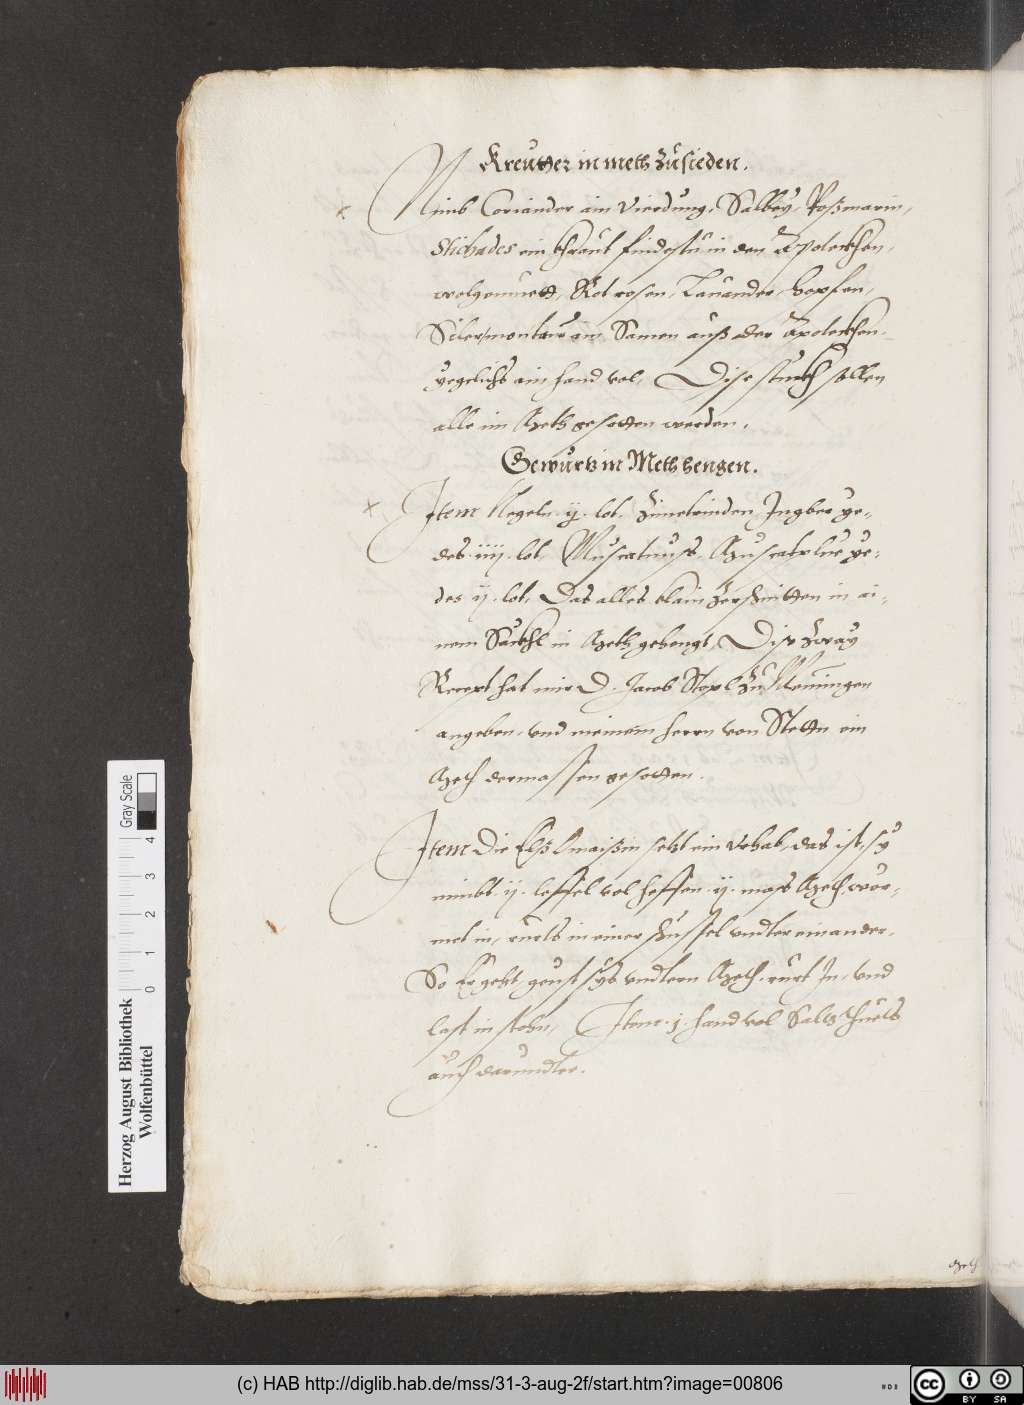 Kreütter in meth zůsieden.
Nimb Coriander ain vierdung, Salbey, Roßmarin,
Stichades ein khraut findestu in den Apoteckhen,
wolgemuett, Rot rosen, Lauander, hopfen,
Siler montanum Samen auß der Apoteckhen
yegelichs ain hand vol, Dise stuckh sollen
alle im Meth gesotten werden.
Gewürtz in Meth hengen.
Item Negeln ij. lot. Zimetrinden Ingber ye-
des iiij. lot, Muscatnuss, Muscatplue ye-
des ij. lot, Das alles klain zerschnitten in ai-
nem Säckhl in Meth gehengt, Dise zway
Recept hat mir D. Jacob zů
angeben, vnd meinem herrn von Stettn ein
Meth dermassen gesotten.
Item Die setzt ein vrhab, das ist, sy
nimbt ij. leffel vol heffen ij. mass Meth, wor-
met in, rürts in einer schüssel vndter einander,
So Er geht, geust sys vndtern Meth, rürt In, vnd
last in stehn, Item j. hand vol Saltz thuets
auch darundter.
Meth
Herzog August Bibliothek
Wolfenbüttel
0 1 2 3 4
Gray Scale
(c) HAB http://diglib.hab.de/mss/31-3-aug-2f/start.htm?image=00806
cc
BY SA